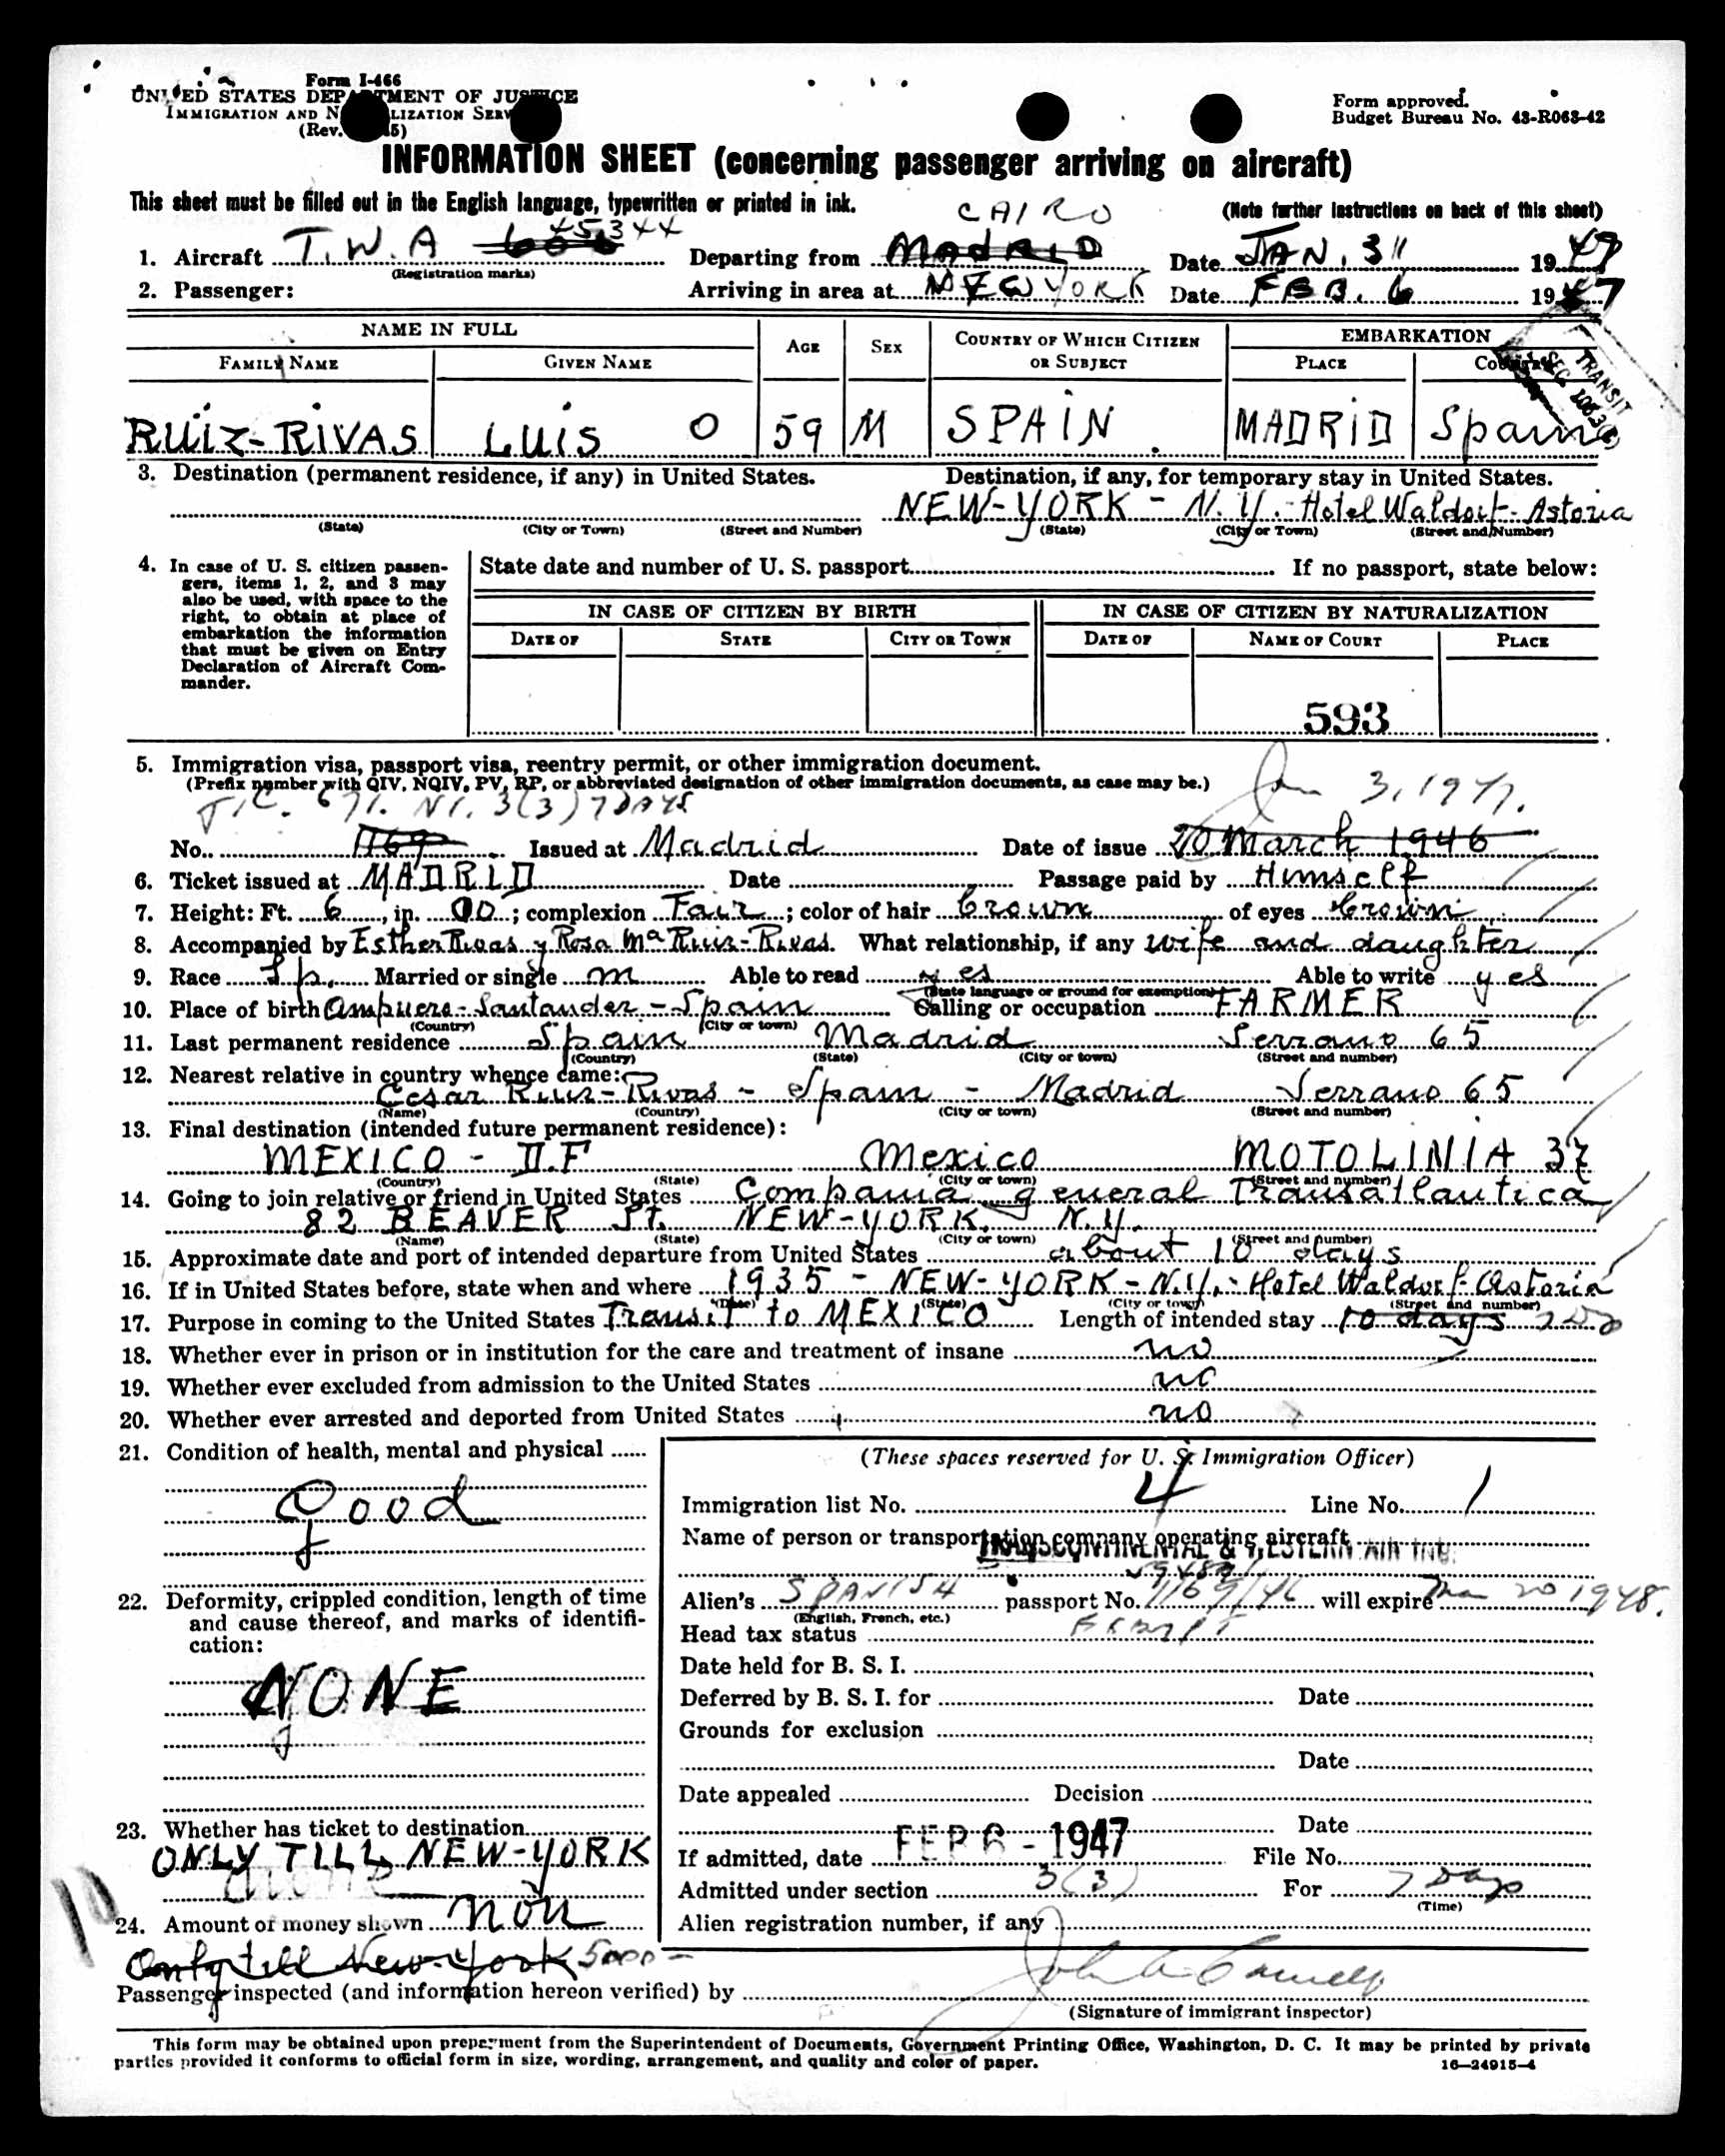 Form I-466
UNITED STATES DEPARTMENT OF JUSTICE
IMMIGRATION AND NATURALIZATION SERVICE
(Rev. 5)
Form approved.
Budget Bureau No. 43-R063-42
INFORMATION SHEET (concerning passenger arriving on aircraft)
This sheet must be filled out in the English language, typewritten or printed in ink.
(Note further instructions on back of this sheet)
45344 CAIRO
1. Aircraft T.W.A (Registration marks) Departing from MADRID Date JAN. 31 1947
2. Passenger: Arriving in area at NEW YORK Date FEB. 6 1947
NAME IN FULL AGE SEX COUNTRY OF WHICH CITIZEN OR SUBJECT EMBARKATION
FAMILY NAME GIVEN NAME PLACE COUNTRY
TRANSIT
RUIZ-RIVAS LUIS O 59 M SPAIN MADRID Spain
3. Destination (permanent residence, if any) in United States. Destination, if any, for temporary stay in United States.
NEW-YORK - N.Y. - Hotel Waldorf-Astoria
(State) (City or Town) (Street and Number) (State) (City or Town) (Street and Number)
4. In case of U. S. citizen passengers, items 1, 2, and 3 may also be used, with space to the right, to obtain at place of embarkation the information that must be given on Entry Declaration of Aircraft Commander.
State date and number of U. S. passport If no passport, state below:
IN CASE OF CITIZEN BY BIRTH IN CASE OF CITIZEN BY NATURALIZATION
DATE OF STATE CITY OR TOWN DATE OF NAME OF COURT PLACE
593
5. Immigration visa, passport visa, reentry permit, or other immigration document.
(Prefix number with QIV, NQIV, PV, RP, or abbreviated designation of other immigration documents, as case may be.)
T.C. 671. 3(3) 7 DAYS Jan 3, 1947.
No. 1169 Issued at Madrid Date of issue 20 March 1946
6. Ticket issued at MADRID Date Passage paid by Himself
7. Height: Ft. 6, in. 00; complexion Fair; color of hair brown of eyes brown
8. Accompanied by Esther Rivas y Rosa Ma Ruiz-Rivas. What relationship, if any wife and daughter
9. Race Sp. Married or single m Able to read yes Able to write yes
(State language or ground for exemption)
10. Place of birth Ampuero-Santander-Spain Calling or occupation FARMER
(Country) (City or town)
11. Last permanent residence Spain Madrid Serrano 65
(Country) (State) (City or town) (Street and number)
12. Nearest relative in country whence came:
Cesar Ruiz-Rivas - Spain - Madrid Serrano 65
(Name) (Country) (City or town) (Street and number)
13. Final destination (intended future permanent residence):
MEXICO - D.F Mexico MOTOLINIA 37
(Country) (State) (City or town) (Street and number)
14. Going to join relative or friend in United States Compania general Transatlantica
82 BEAVER St. NEW-YORK. N.Y.
(Name) (State) (City or town) (Street and number)
15. Approximate date and port of intended departure from United States about 10 days
16. If in United States before, state when and where 1935 - NEW-YORK - N.Y. - Hotel Waldorf-Astoria
(Date) (State) (City or town) (Street and number)
17. Purpose in coming to the United States Transit to MEXICO Length of intended stay 10 days
18. Whether ever in prison or in institution for the care and treatment of insane no
19. Whether ever excluded from admission to the United States no
20. Whether ever arrested and deported from United States no
21. Condition of health, mental and physical
good
22. Deformity, crippled condition, length of time and cause thereof, and marks of identification:
NONE
23. Whether has ticket to destination
ONLY TILL NEW-YORK
10
24. Amount of money shown
Only till New-York 5000-
(These spaces reserved for U. S. Immigration Officer)
Immigration list No. 4 Line No. 1
Name of person or transportation company operating aircraft
TRANSCONTINENTAL & WESTERN AIR INC.
Alien's SPANISH passport No. 1169/46 will expire Mar 20 1948.
(English, French, etc.)
Head tax status
Date held for B. S. I.
Deferred by B. S. I. for Date
Grounds for exclusion
Date
Date appealed Decision
Date
If admitted, date FEB 6 - 1947 File No.
Admitted under section 3(3) For 7 Days
(Time)
Alien registration number, if any
Passenger inspected (and information hereon verified) by
(Signature of immigrant inspector)
This form may be obtained upon prepayment from the Superintendent of Documents, Government Printing Office, Washington, D. C. It may be printed by private
parties provided it conforms to official form in size, wording, arrangement, and quality and color of paper.
16—24915-4